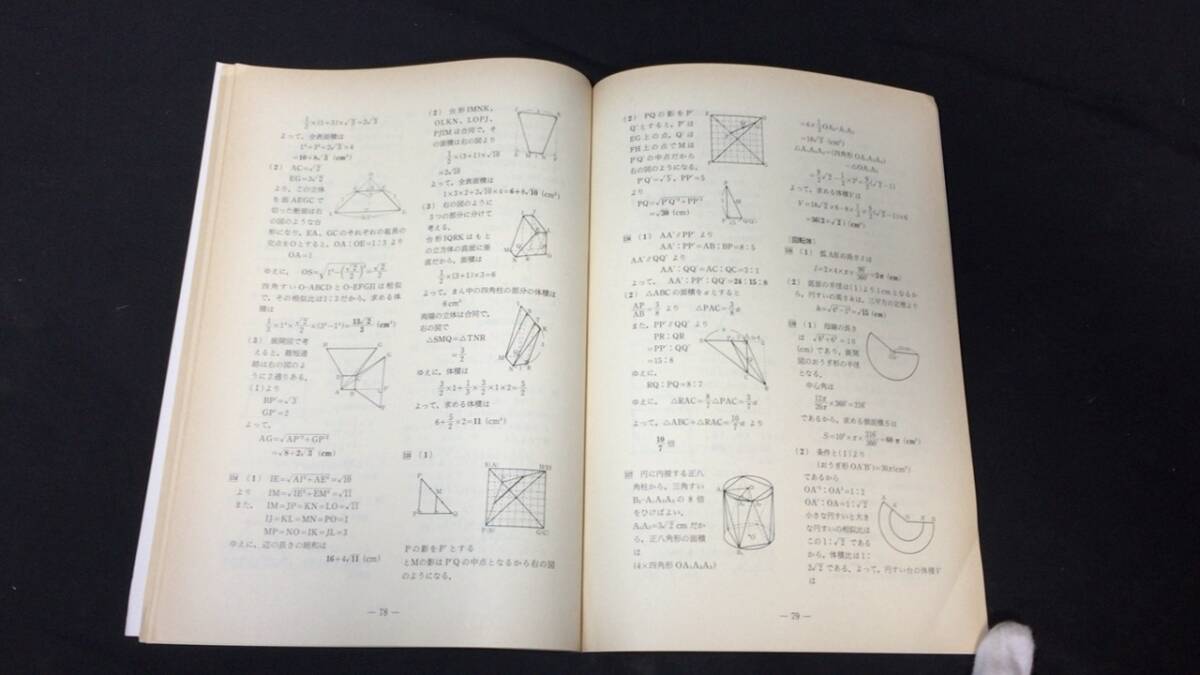 ½×(1+3)×√3=2√3
よって、全表面積は
1²+3²+2√3×4
=10+8√3 (cm²)
(2) AC=√2
EG=3√2
より、この立体
を面AEGCで
切った断面は右
の図のような台
形になり、EA、GCのそれぞれの延長の
交点をOとすると、OA：OE=1：3より
OA=1
四角すいO-ABCDとO-EFGHは相似
で、その相似比は1：3だから、求める体
積は
(3) 展開図で考
えると、最短道
跡は右の図のよ
うに2通りある。
(1)より
BP'=√3
GP'=2
よって、
AG=√AP'²+GP'²
=√8+2√3 (cm)
(1) IE=√AI²+AE²=√10
より IM=√IE²+EM²=√11
また、IM=JP=KN=LO=√11
IJ=KL=MN=PO=1
MP=NO=IK=JL=3
ゆえに、辺の長さの総和は
16+4√11 (cm)
— 78 —
(2) 台形IMNK、
OLKN、LOPJ、
PJIMは合同で、そ
の面積は右の図より
½×(3+1)×√10
=2√10
よって、全表面積は
1×3×2+2√10×4=6+8√10 (cm²)
(3) 右の図のように
3つの部分に分けて
考える。
台形IQRKはも と
の立方体の底面に垂
直だから、面積は
½×(3+1)×3=6
よって、まん中の四角柱の部分の体積は
6cm³
両端の立体は合同で、
右の図で
△SMQ=△TNR
=3/2
ゆえに、体積は
3/2×1+1/3×3/2×1×2=5/2
よって、求める体積は
6+5/2×2=11 (cm³)
(1)
Pの影をP'とする
とMの影はP'Qの中点となるから右の図
のようになる。
(2) PQの影をP'
Q'とすると、P'は
EG上の点、Q'は
FH上の点でMは
P'Q'の中点だから
右の図のようになる。
P'Q'=√5、PP'=5
より
PQ=√P'Q'²+PP'²
=√30 (cm)
(1) AA'∥PP' より
AA'：PP'=AB：BP=8：5
AA'∥QQ' より
AA'：QQ'=AC：QC=3：1
ゆえに、AA'：PP'：QQ'=24：15：8
(2) △ABCの面積をaとすると
AP/AB=3/8 より △PAC=3/8a
また、PP'∥QQ' より
PR：QR
=PP'：QQ'
=15：8
ゆえに、
RQ：PQ=8：7
ゆえに、△RAC=8/7△PAC=3/7a
よって、△ABC+△RAC=10/7a より
10/7 倍
円に内接する正八
角柱から、三角すい
の8倍
をひけばよい。
A₁A₃=3√2cmだか
ら、正八角形の面積
は
(4×四角形OA₁A₂A₃)
— 79 —
=4×½OA₂·A₁A₃
=18√2 (cm²)
△A₁A₂A₃=(四角形OA₁A₂A₃)
−△OA₁A₃
=9/2√2−½×3²=9/2(√2−1)
よって、求める体積Vは
V=18√2×6−8×⅓×9/2(√2−1)×6
=36(2+√2) (cm³)
〔回転体〕
(1) 弧ABの長さlは
l=2×4×π×90°/360°=2π (cm)
(2) 底面の半径は(1)より1cmとなるか
ら、円すいの高さhは、三平方の定理より
h=√4²−1²=√15 (cm)
(1) 母線の長さ
は √8²+6²=10
(cm)であり、展開
図のおうぎ形の半径
となる。
中心角は
12π/20π×360°=216°
であるから、求める側面積Sは
S=10²×π×216°/360°=60π (cm²)
(2) 条件と(1)より
(おうぎ形OA'B')=30π(cm²)
であるから
OA'²：OA²=1：2
OA'：OA=1：√2
小さな円すいと大き
な円すいの相似比は
この1：√2である
から、体積比は1：
2√2である。よって、円すい台の体積V
は